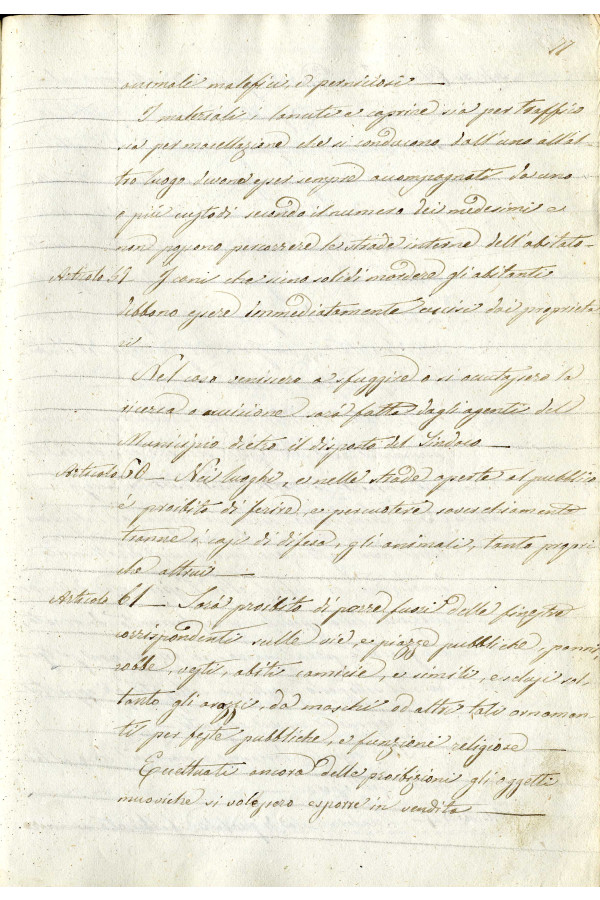 17
animali malefici, e perniciosi —
I materiali i lanuti e caprine sia per traffico
sia per macellazione che si conducono dall'uno all'al-
tro luogo devono esser sempre accompagnati da uno
o più custodi secondo il numero dei medesimi e
non possono percorrere le strade interne dell'abitato-
Articolo 59 I cani che sieno soliti mordere gli abitanti
debbono essere immediatamente uccisi dai proprieta
ri
Nel caso venissero a sfuggire o si occultassero la
ricerca o uccisione sarà fatta dagli agenti del
Municipio dietro il disposto del Sindaco —
Articolo 60 — Nei luoghi, e nelle strade aperte al pubblico
è proibito di ferire, e percuotere
tranne i casi di difesa, gli animali, tanto propri
che altrui —
Articolo 61 — Sarà proibito di porre fuori delle finestre
corrispondenti sulle vie, e piazze pubbliche, panni,
robbe, vesti, abiti camicie, e simili, esclusi sol-
tanto gli arazzi, da maschi ed altri tali ornamen-
ti per feste pubbliche, e funzioni religiose
Eccettuati ancora dalle proibizioni gli oggetti
nuovi che si solessero esporre in vendita —